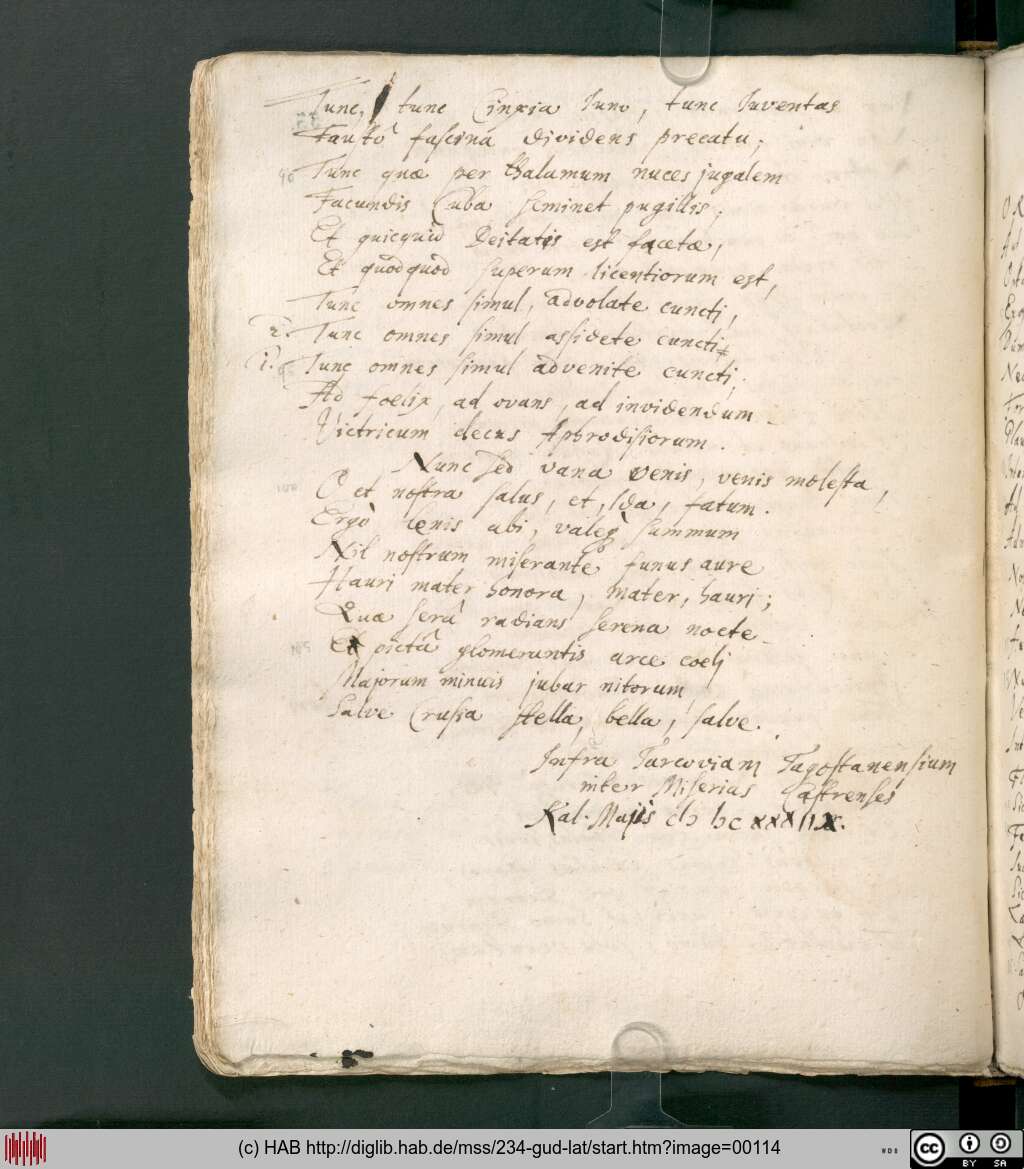 Tunc, tunc Cinxia Iuno, tunc Iuventas
Faustô fascina dividens precatu;
Tunc quæ per thalamum nuces jugalem
Facundis Cuba seminet pugillis;
Et quicquid Deitatis est facetæ,
Et quodquod superum licentiorum est,
Tunc omnes simul, advolate cuncti,
2. Tunc omnes simul assidete cuncti
1. Tunc omnes simul advenite cuncti,
Ad foelix, ad ovans, ad invidendum
Victricum decus Aphrodisiorum.
Nunc sed vana venis, venis molesta,
O et nostra salus, et, Ida, fatum.
Ergò lenis abi, summum
Nil nostrum miserante funus aure
Hauri mater honora, mater, hauri;
Quæ serâ radians serena nocte
Et pictâ glomeruntis arce coelj
Majorum minuis jubar nitorum
Salve Crussa stella, bella, salve.
Infra Tarcoviam Tagostanensium
inter Miserias Castrenses
Kal. Majis
(c) HAB http://diglib.hab.de/mss/234-gud-lat/start.htm?image=00114
WDB
cc
BY SA